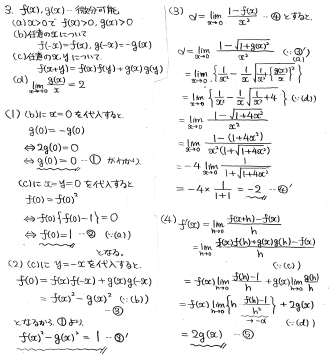 3. f(x), g(x)…微分可能
(a) x>0で f(x)>0, g(x)>0
(b) 任意のxについて
f(-x)=f(x), g(-x)=-g(x)
(c) 任意のx, yについて
f(x+y)=f(x)f(y)+g(x)g(y)
(d) lim_{x→0} g(x)/x = 2
(1) (b)に x=0 を代入すると
g(0)=-g(0)
⇔ 2g(0)=0
⇔ g(0)=0 …① がわかり、
(c)に x=y=0 を代入すると
f(0)=f(0)²
⇔ f(0){f(0)-1}=0
⇔ f(0)=1 …② (∵(a))
となる。
(2) (c)に y=-x を代入すると、
f(0)=f(x)f(-x)+g(x)g(-x)
=f(x)²-g(x)² (∵(b))
…③
となるから、①より、
f(x)²-g(x)²=1 …③'
(3)
α=lim_{x→0} (1-f(x))/x² …④ とすると、
α=lim_{x→0} (1-√(1+g(x)²))/x² (∵③')
=lim_{x→0} {1/x²-1/x √(1/x²+{g(x)/x}²)}
=lim_{x→0} {1/x²-1/x √(1/x²+4)} (∵(d))
=lim_{x→0} (1-√(1+4x²))/x²
=lim_{x→0} (1-(1+4x²))/(x²(1+√(1+4x²)))
=-4 lim_{x→0} 1/(1+√(1+4x²))
=-4×1/(1+1)=-2 …④'
(4) f'(x)=lim_{h→0} (f(x+h)-f(x))/h
=lim_{h→0} (f(x)f(h)+g(x)g(h)-f(x))/h
(∵(c))
=f(x) lim_{h→0} (f(h)-1)/h + g(x) lim_{h→0} g(h)/h
=f(x) lim_{h→0} {h (f(h)-1)/h²} + 2g(x)
→-α (∵(d))
=2g(x) …⑤